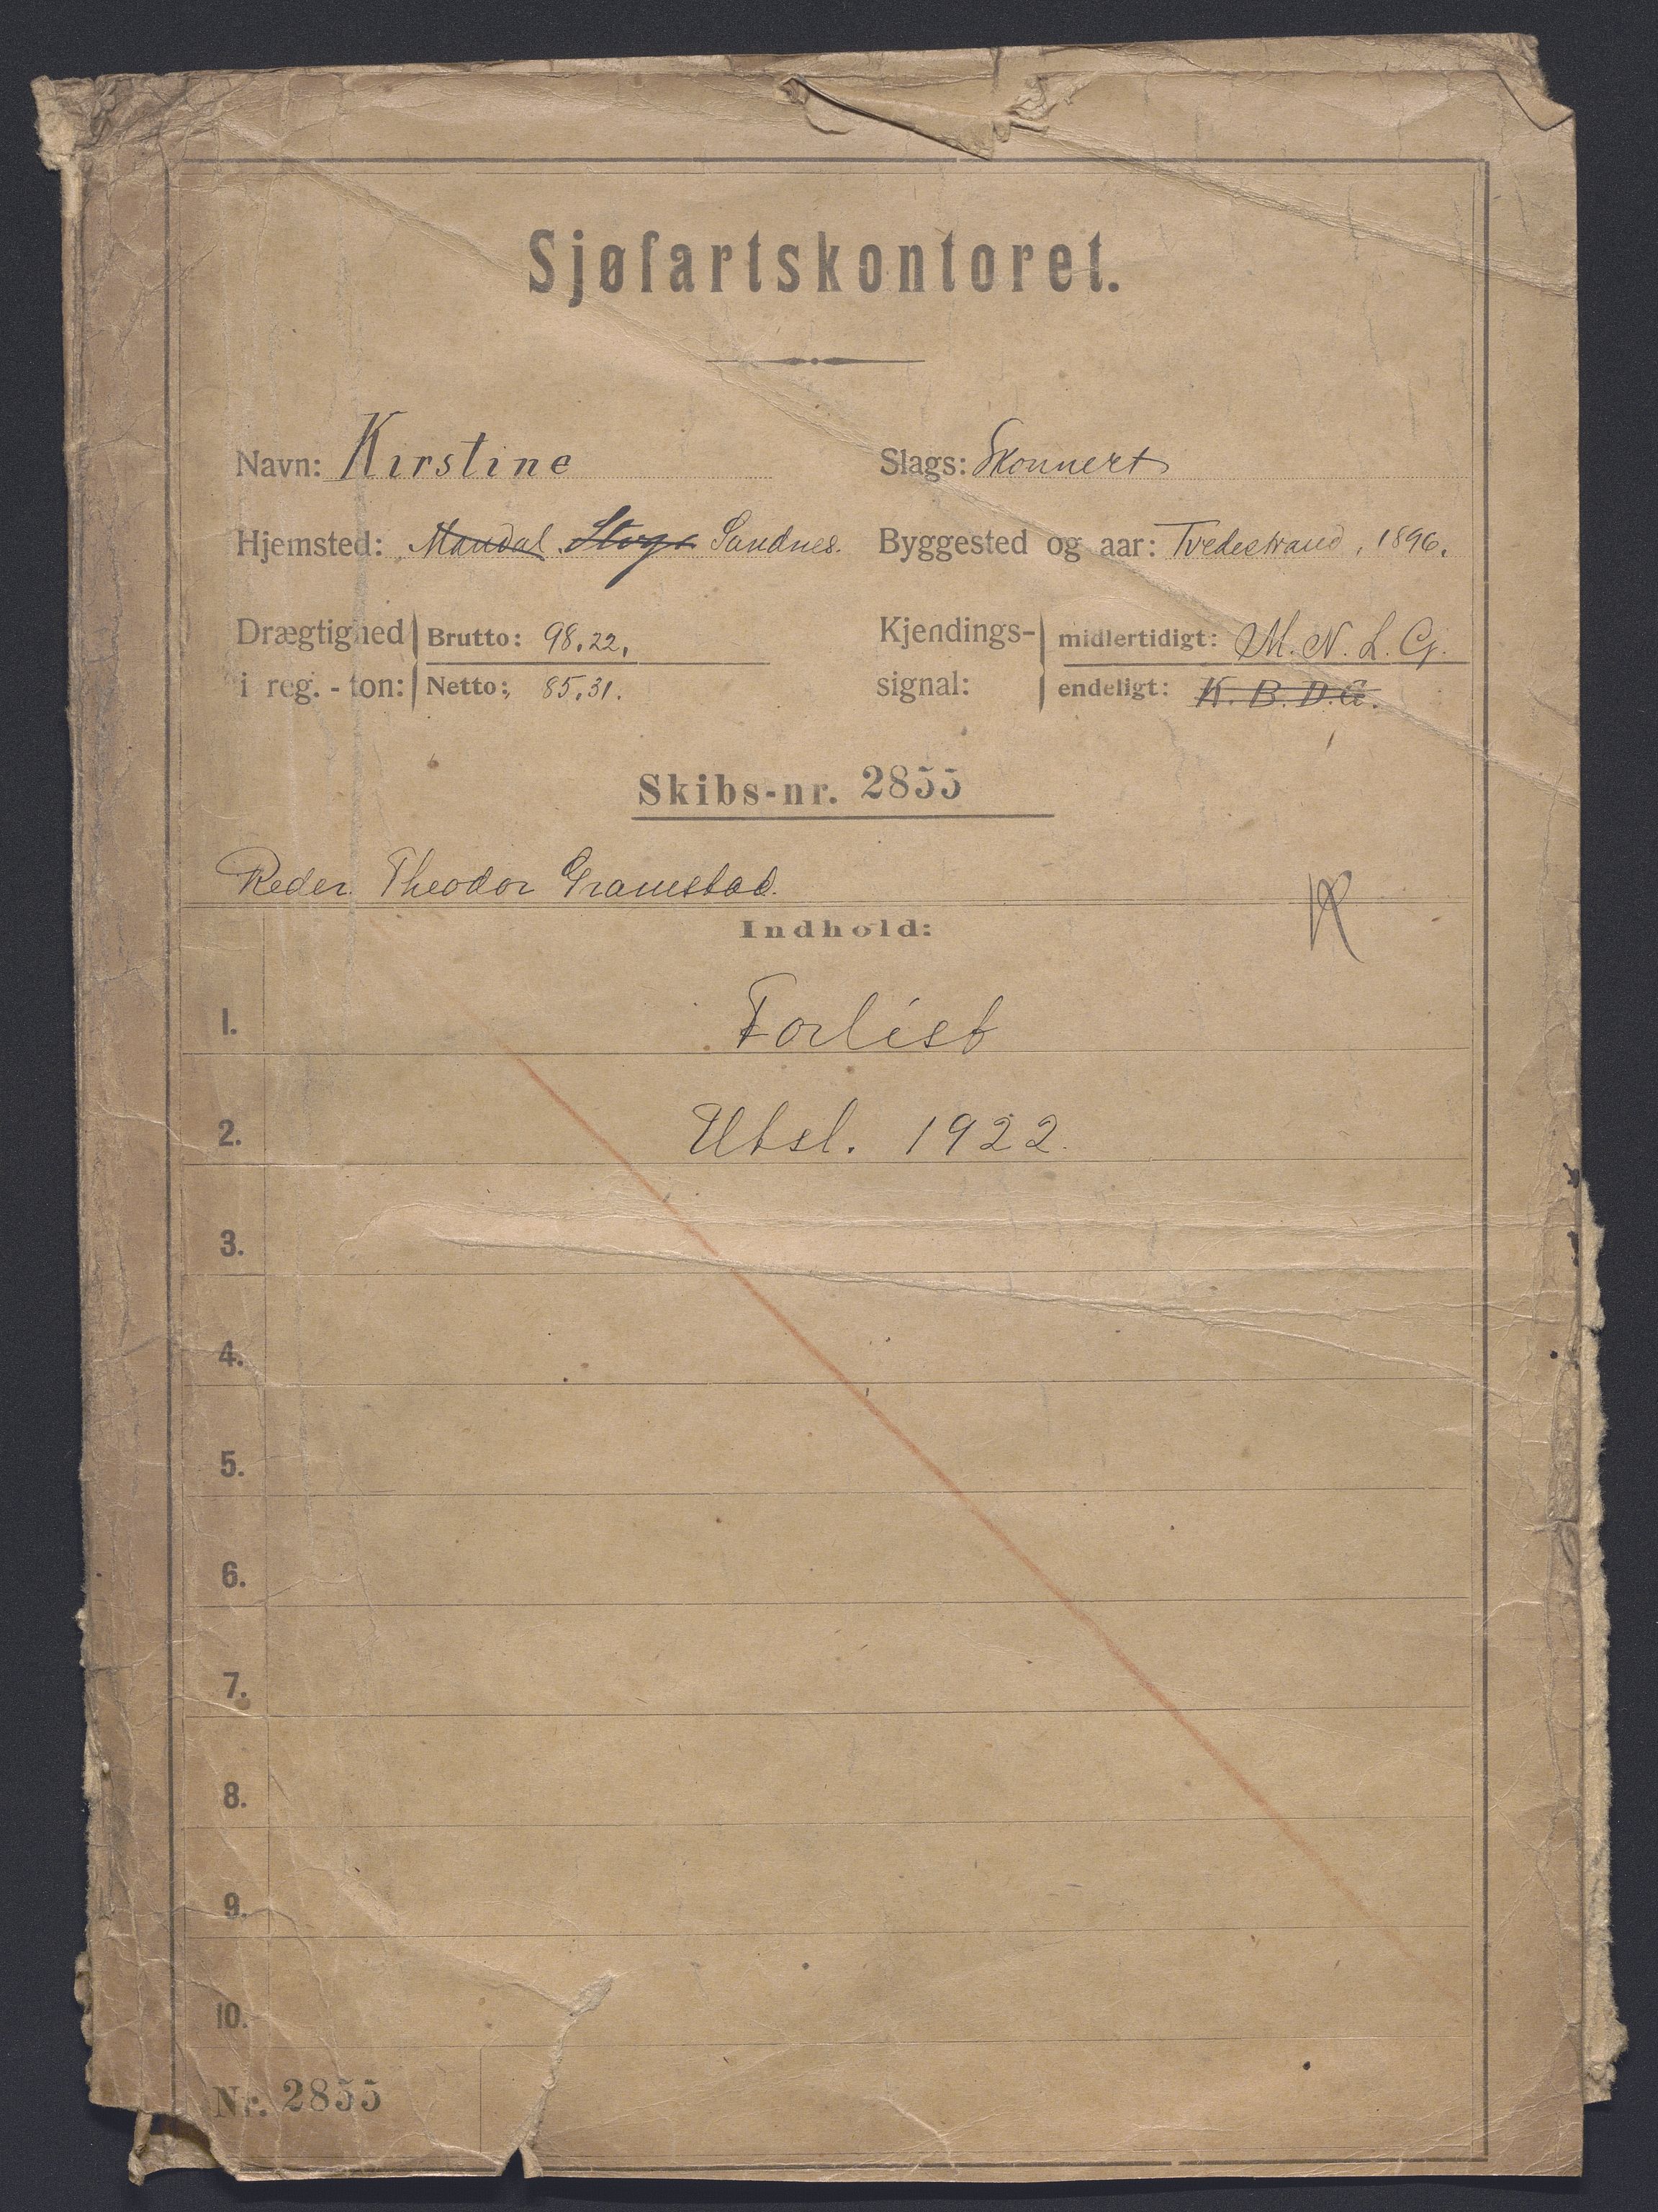 Sjøfartskontoret.
Navn: Kirstine
Slags: Skonnert
Hjemsted: Mandal Sandnes.
Byggested og aar: Tvedestrand, 1896.
Drægtighed i reg.-ton: Brutto: 98,22,
Netto: 85,31.
Kjendings-signal: midlertidigt: M. N. L. G.
endeligt: K. B. D. G.
Skibs-nr. 2855
Reder Theodor Gramstad.
Indhold:
1. Forlist
2. Utsl. 1922.
3.
4.
5.
6.
7.
8.
9.
10.
Nr. 2855